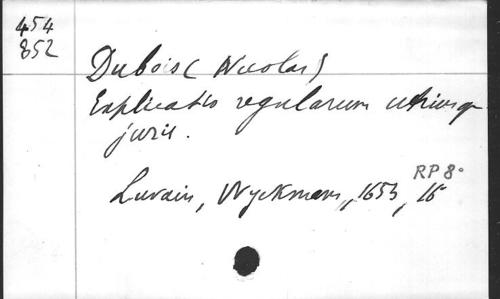 454
852
Dubois (Nicolas)
Explicatio regularum utriusq
juris.
RP 8º
Luvain, Wyckmans, 1653, 16